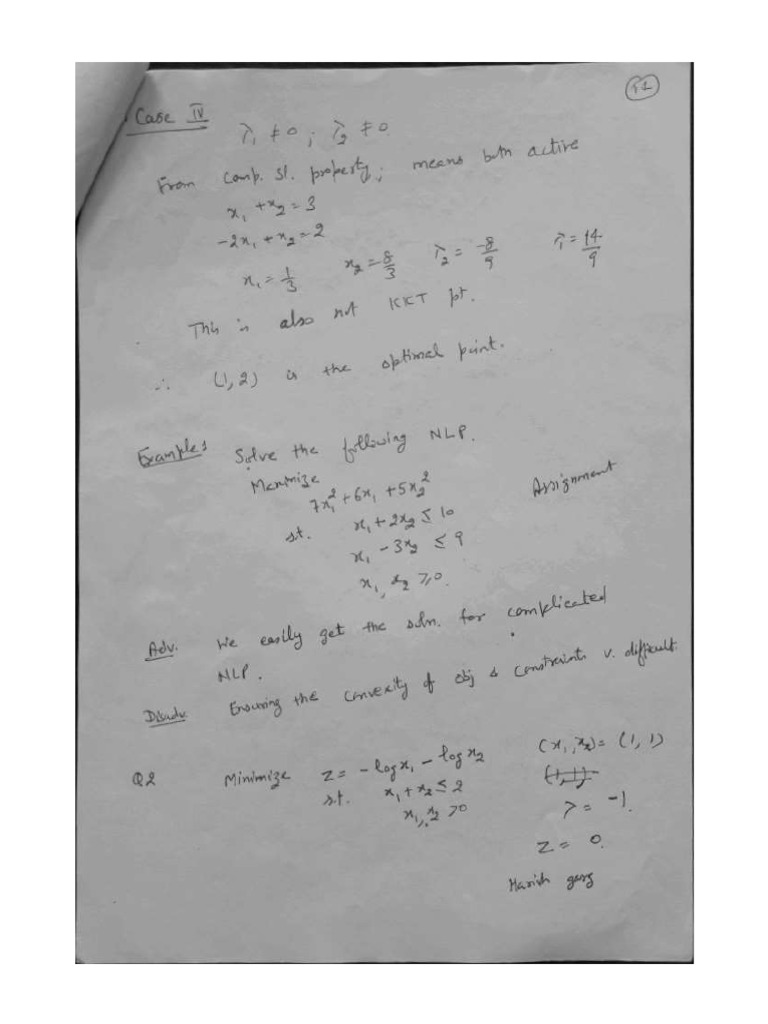 51
Case IV
λ₁ ≠ 0 ; λ₂ ≠ 0
From comp. sl. property; means both active
x₁ + x₂ = 3
-2x₁ + x₂ = 2
x₁ = 1/3 x₂ = 8/3 λ₂ = -8/9 λ₁ = 14/9
This is also not KKT pt.
∴ (1, 2) is the optimal point.
Examples Solve the following NLP.
Maximize
7x₁² + 6x₁ + 5x₂² Assignment
st. x₁ + 2x₂ ≤ 10
x₁ - 3x₂ ≤ 9
x₁, x₂ ≥ 0.
Adv. We easily get the soln. for complicated
NLP.
Disadv Ensuring the convexity of obj & constraints v. difficult
Q2 Minimize Z = -log x₁ - log x₂ (x₁, x₂) = (1, 1)
s.t. x₁ + x₂ ≤ 2 (1, 1)
x₁, x₂ > 0 λ = -1.
Z = 0.
Harish garg